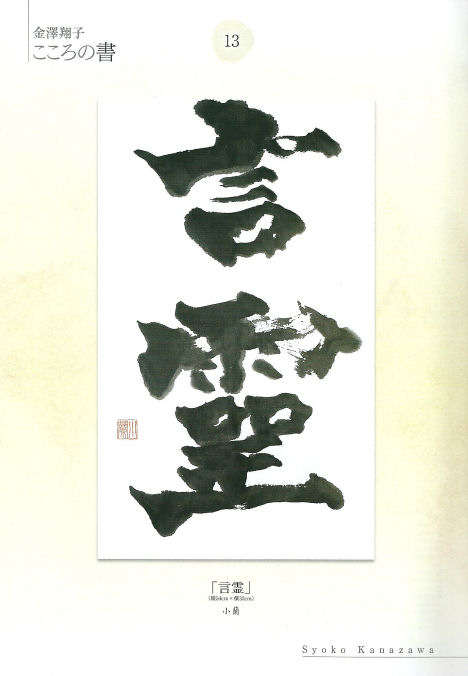 金澤翔子
こころの書
13
言靈
「言霊」
(縦54cm×横33cm)
小蘭
Syoko Kanazawa